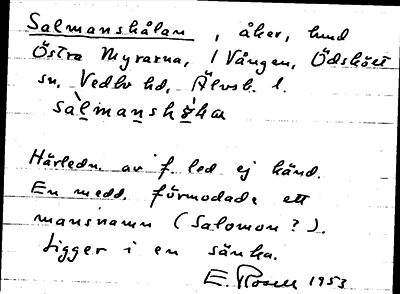 Salmanshålan, åker, hmd
Östra Myrarna, i Vången, Ödskölt
sn. Vedbo hd, Älvsb. l.
salmanshòḷa
Härledn. av f. led ej känd.
En medd. förmodade ett
mansnamn (Salomon?).
Ligger i en sänka.
E. Rosell 1953